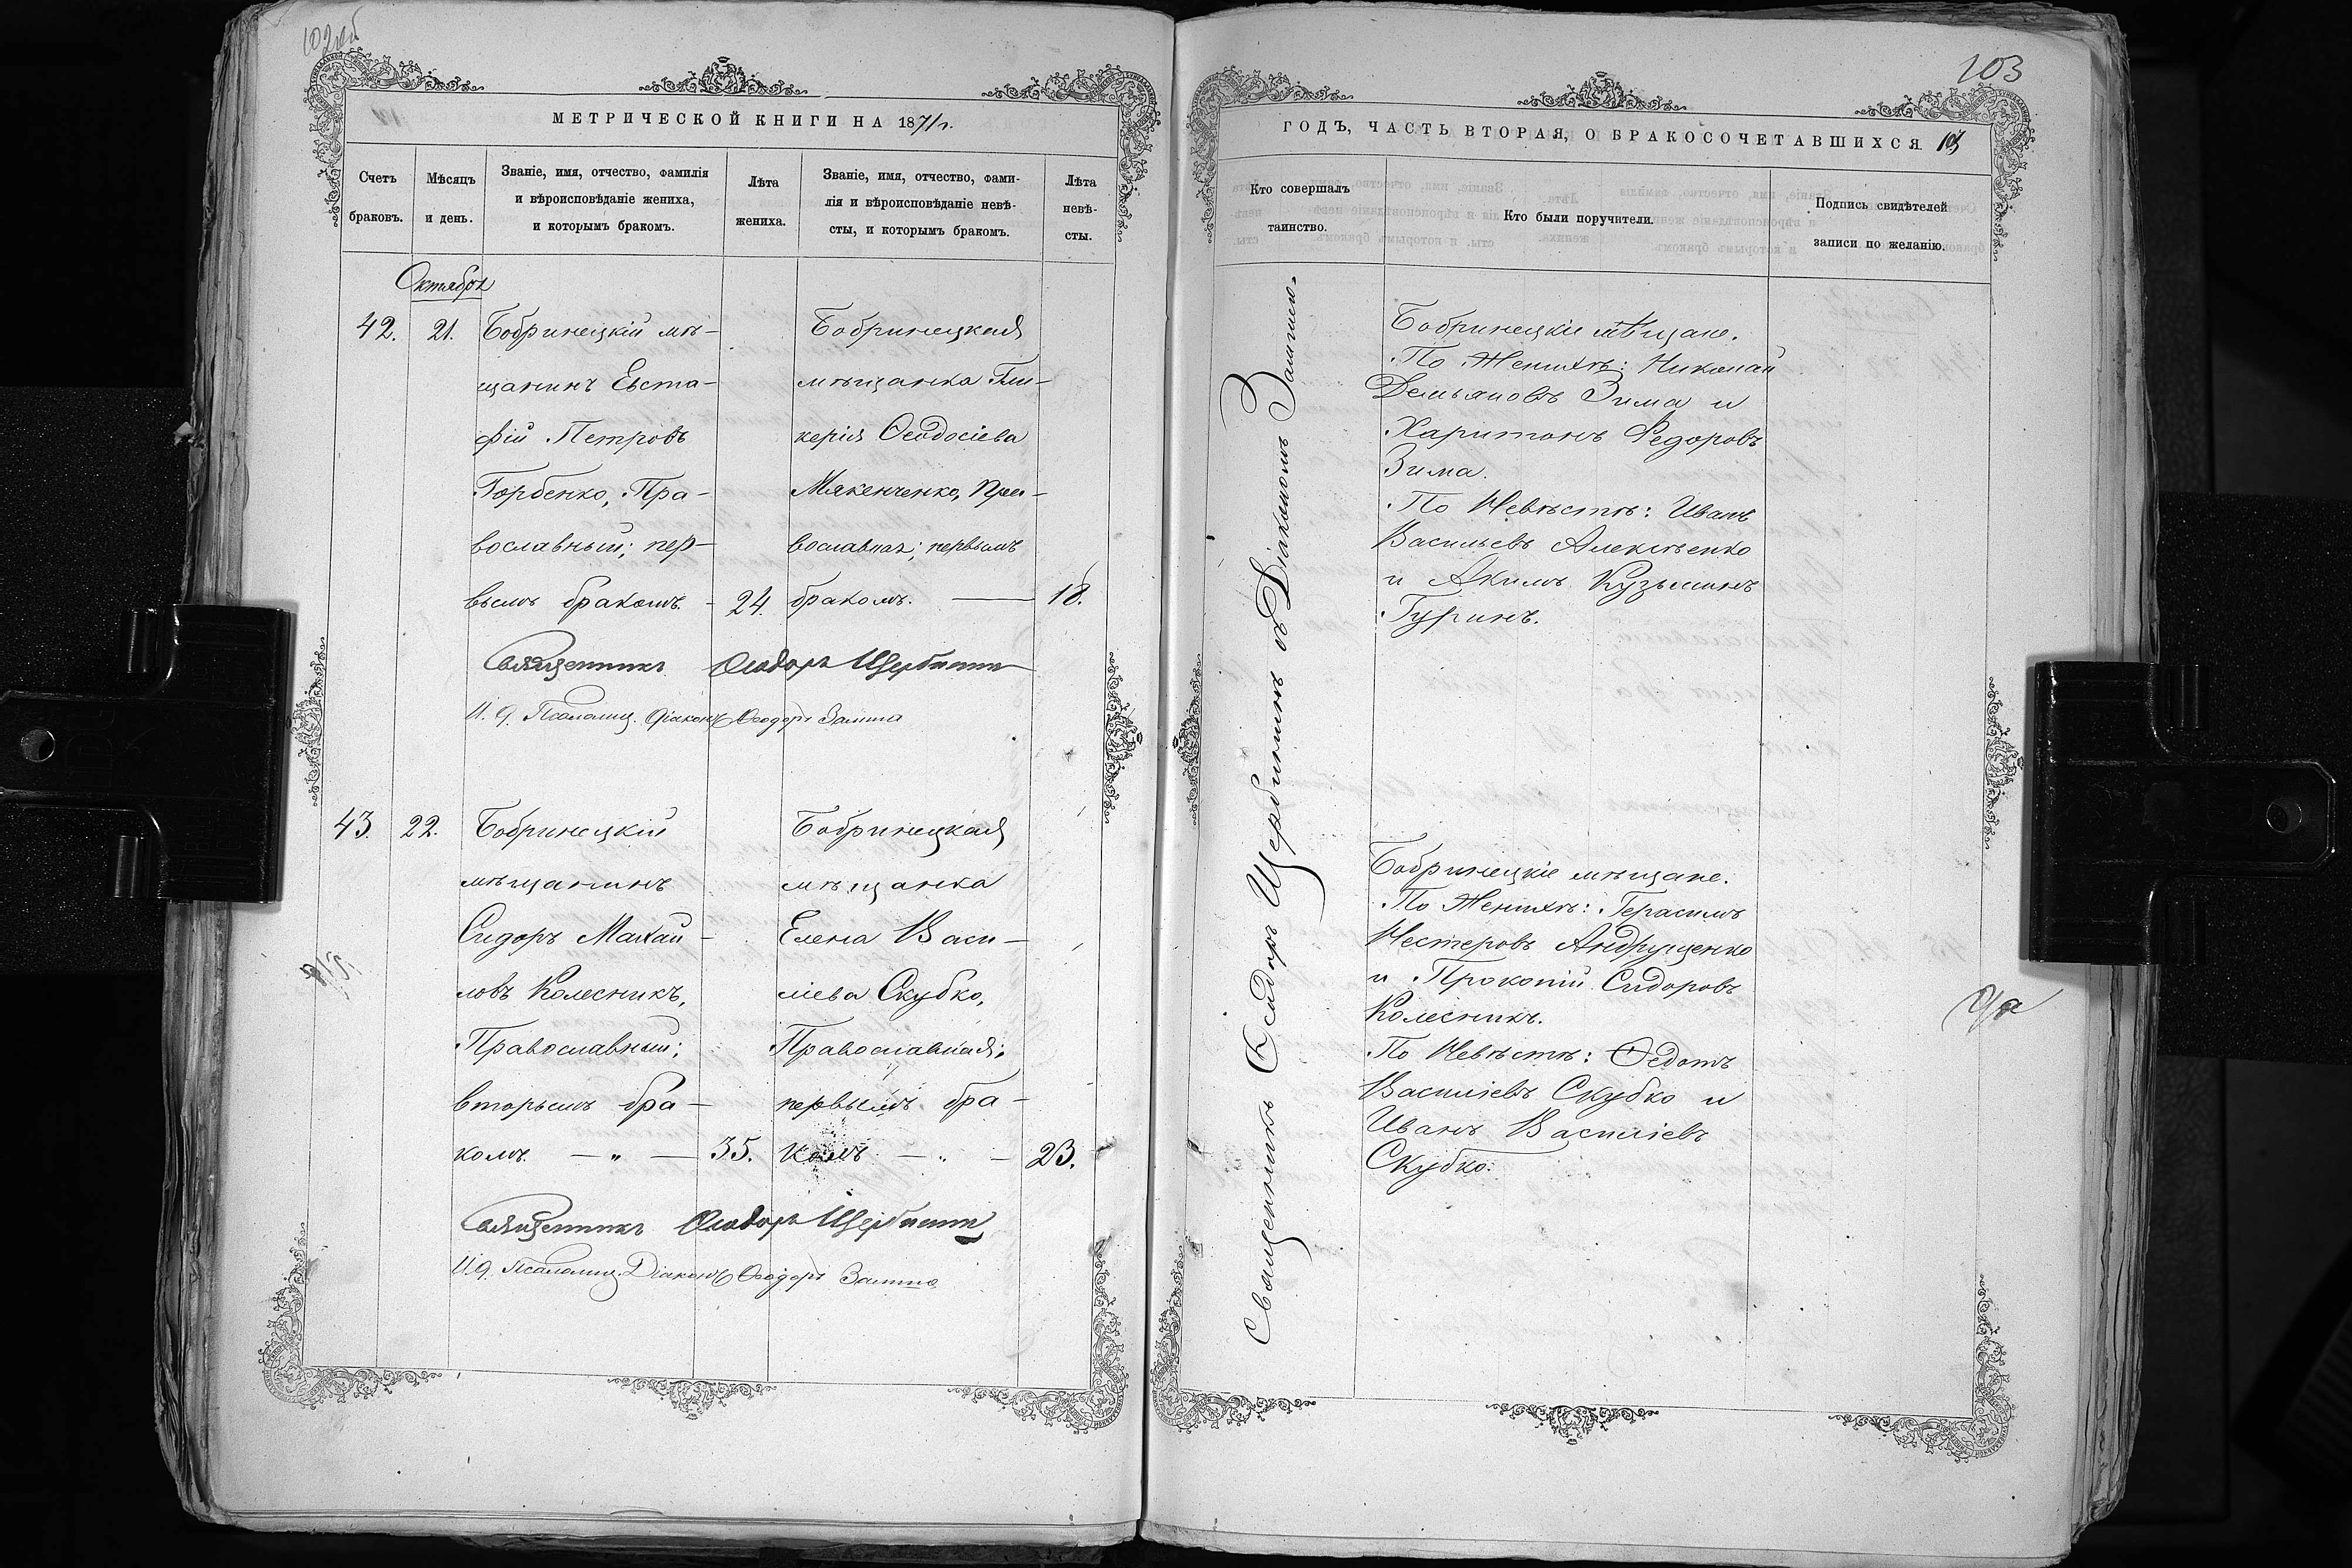 МЕТРИЧЕСКОЙ КНИГИ НА 1871 г.
Счетъ браковъ.
Мѣсяцъ и день.
Званіе, имя, отчество, фамилія
и вѣроисповѣданіе жениха,
и которымъ бракомъ.
Лѣта
жениха.
Званіе, имя, отчество, фами-
лія и вѣроисповѣданіе невѣ-
сты, и которымъ бракомъ.
Лѣта
невѣ-
сты.
Октябрь
42.
21.
Бобринецкій мѣ-
щанинъ Евста-
фій Петровъ
Горбенко, Пра-
вославный; пер-
вымъ бракомъ. - 24.
Бобринецкая
мѣщанка Гли-
керія Ѳеодосіева
Мякенченко, Пра-
вославная; первымъ
бракомъ. — 18.
Священникъ Ѳеодоръ Щербининъ
И. д. Псаломщ. Діаконъ Ѳеодоръ Замша
43.
22.
Бобринецкій
мѣщанинъ
Сидоръ Михай-
ловъ Колесникъ,
Православный;
вторымъ бра-
комъ. — " — 35.
Бобринецкая
мѣщанка
Елена Васи-
ліева Скубко,
Православная;
первымъ бра-
комъ — " — 23.
Священникъ Ѳеодоръ Щербининъ
И. д. Псаломщ. Діаконъ Ѳеодоръ Замша
103
ГОДЪ, ЧАСТЬ ВТОРАЯ, О БРАКОСОЧЕТАВШИХСЯ 103
Кто совершалъ
таинство.
Кто были поручители.
Подпись свидѣтелей
записи по желанію.
Священникъ Ѳеодоръ Щербининъ съ Діакономъ Замшею.
Бобринецкіе мѣщане.
По Женихѣ: Николай
Демьяновъ Зима и
Харитонъ Федоровъ
Зима.
По Невѣстѣ: Иванъ
Васильевъ Алексѣенко
и Акимъ Кузьминъ
Гуринъ.
Бобринецкіе мѣщане.
По Женихѣ: Герасимъ
Нестеровъ Андрущенко
и Прокопій Сидоровъ
Колесникъ.
По Невѣстѣ: Ѳедотъ
Василіевъ Скубко и
Иванъ Василіевъ
Скубко.